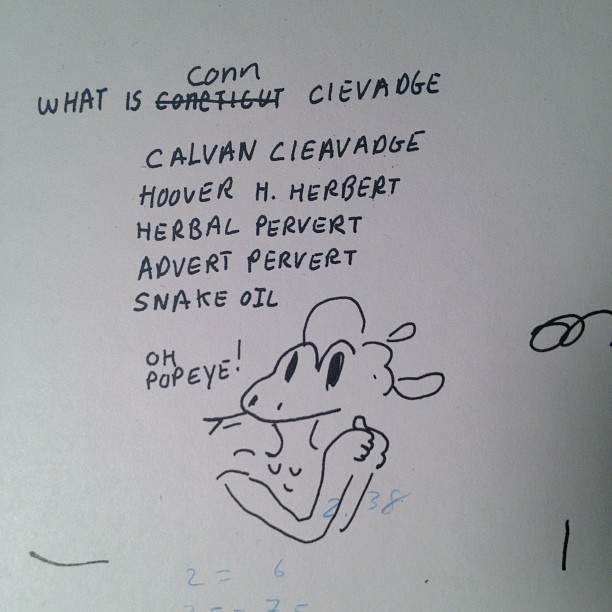 CONN
WHAT IS CONETICUT CIEVADGE
CALVAN CIEAVADGE
HOOVER H. HERBERT
HERBAL PERVERT
ADVERT PERVERT
SNAKE OIL
OH
POPEYE!
2.38
2 = 6